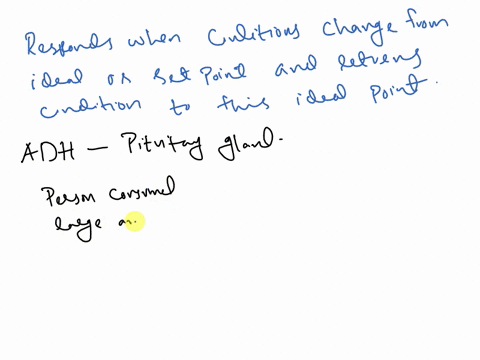 Responds when Cnlitions Change from
ideal or set Point and retrens
condition to this ideal Point.
ADH — Pituitary gland.
Person consumed
large